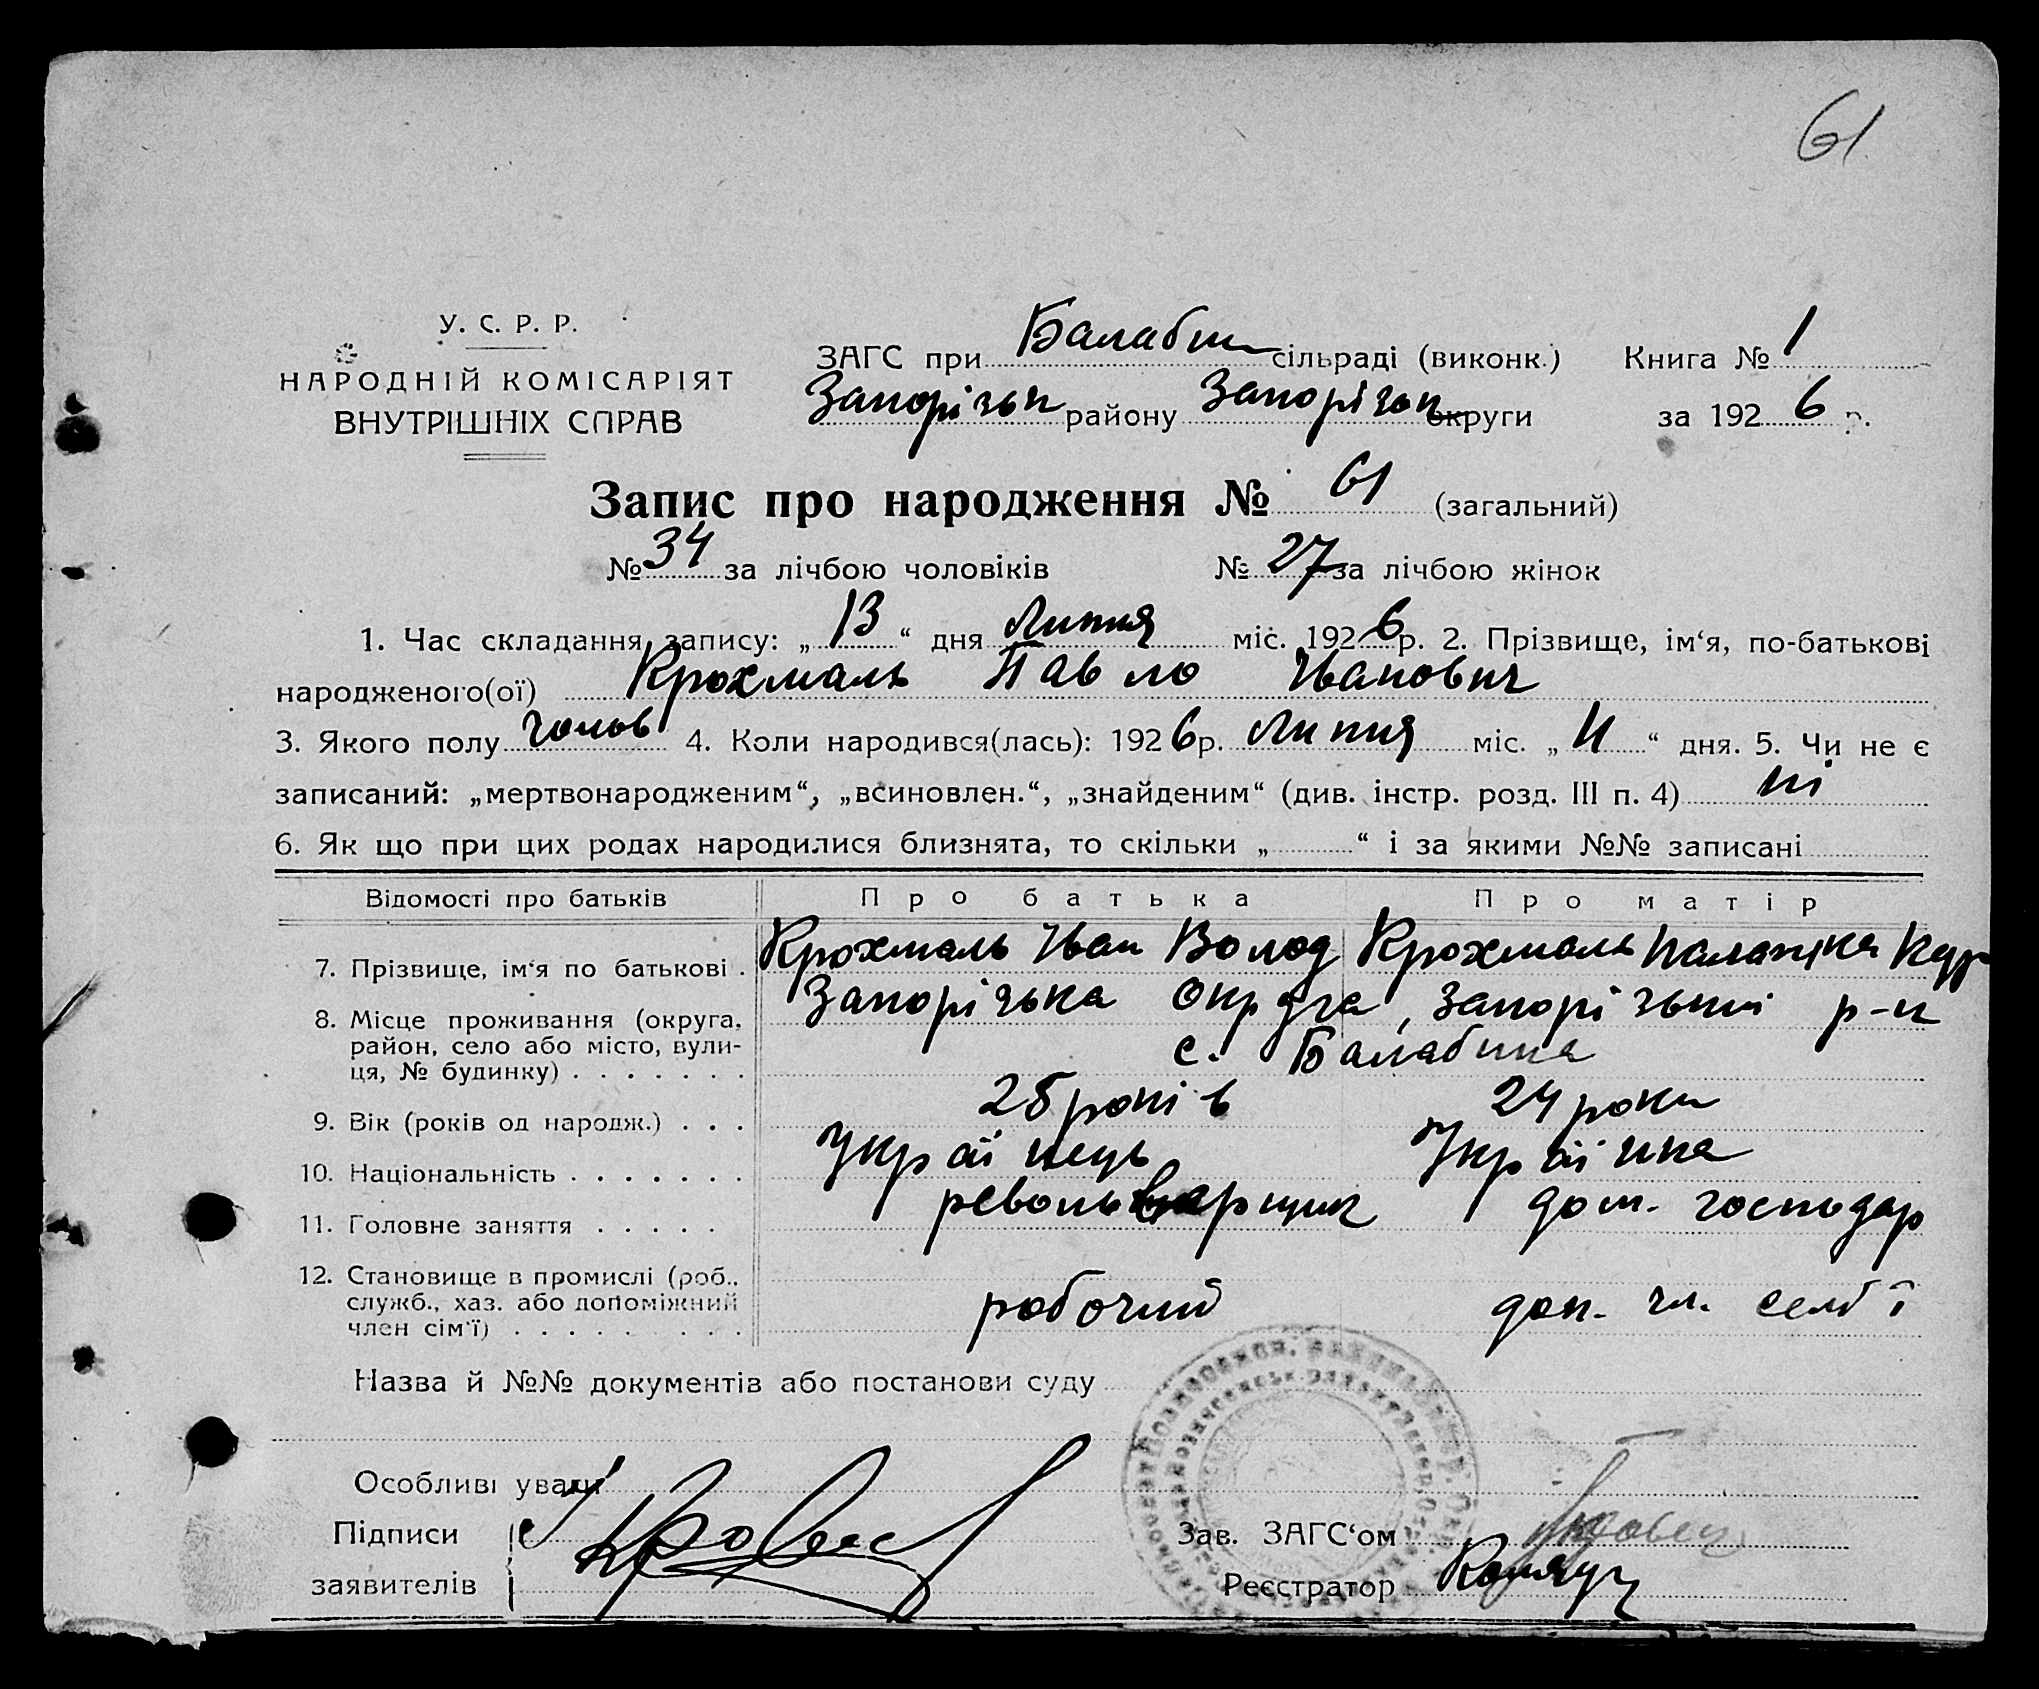 61
У. С. Р. Р.
НАРОДНІЙ КОМІСАРІЯТ
ВНУТРІШНІХ СПРАВ
ЗАГС при Балабин сільраді (виконк.) Книга № 1
Запорізьк району Запорізьк округи за 1926 р.
Запис про народження № 61 (загальний)
№ 34 за лічбою чоловіків № 27 за лічбою жінок
1. Час складання запису: „13“ дня Липня міс. 1926 р. 2. Прізвище, ім‘я, по-батькові
народженого(ої) Крохмаль Павло Іванович
3. Якого полу чолов 4. Коли народився(лась): 1926 р. Липня міс. „11“ дня. 5. Чи не є
записаний: „мертвонародженим“, „всиновлен.“, „знайденим“ (див. інстр. розд. III п. 4) ні
6. Як що при цих родах народилися близнята, то скільки „ “ і за якими №№ записані
Відомості про батьків Про батька Про матір
7. Прізвище, ім‘я по батькові . Крохмаль Іван Волод Крохмаль Палажка
8. Місце проживання (округа, Запорізька Округа, Запорізький р-н
район, село або місто, вули- с. Балабина
ця, № будинку) . . . . . . .
9. Вік (років од народж.) . . . 25 років 24 роки
10. Національність . . . . . . . Українець Українка
11. Головне заняття . . . . . револьверщик дом. господар
12. Становище в промислі (роб.,
служб., хаз. або допоміжний робочий доп. чл. семї
член сім‘ї) . . . . . . . . .
Назва й №№ документів або постанови суду
Особливі уваги
Підписи Зав. ЗАГС‘ом
заявителів Реєстратор